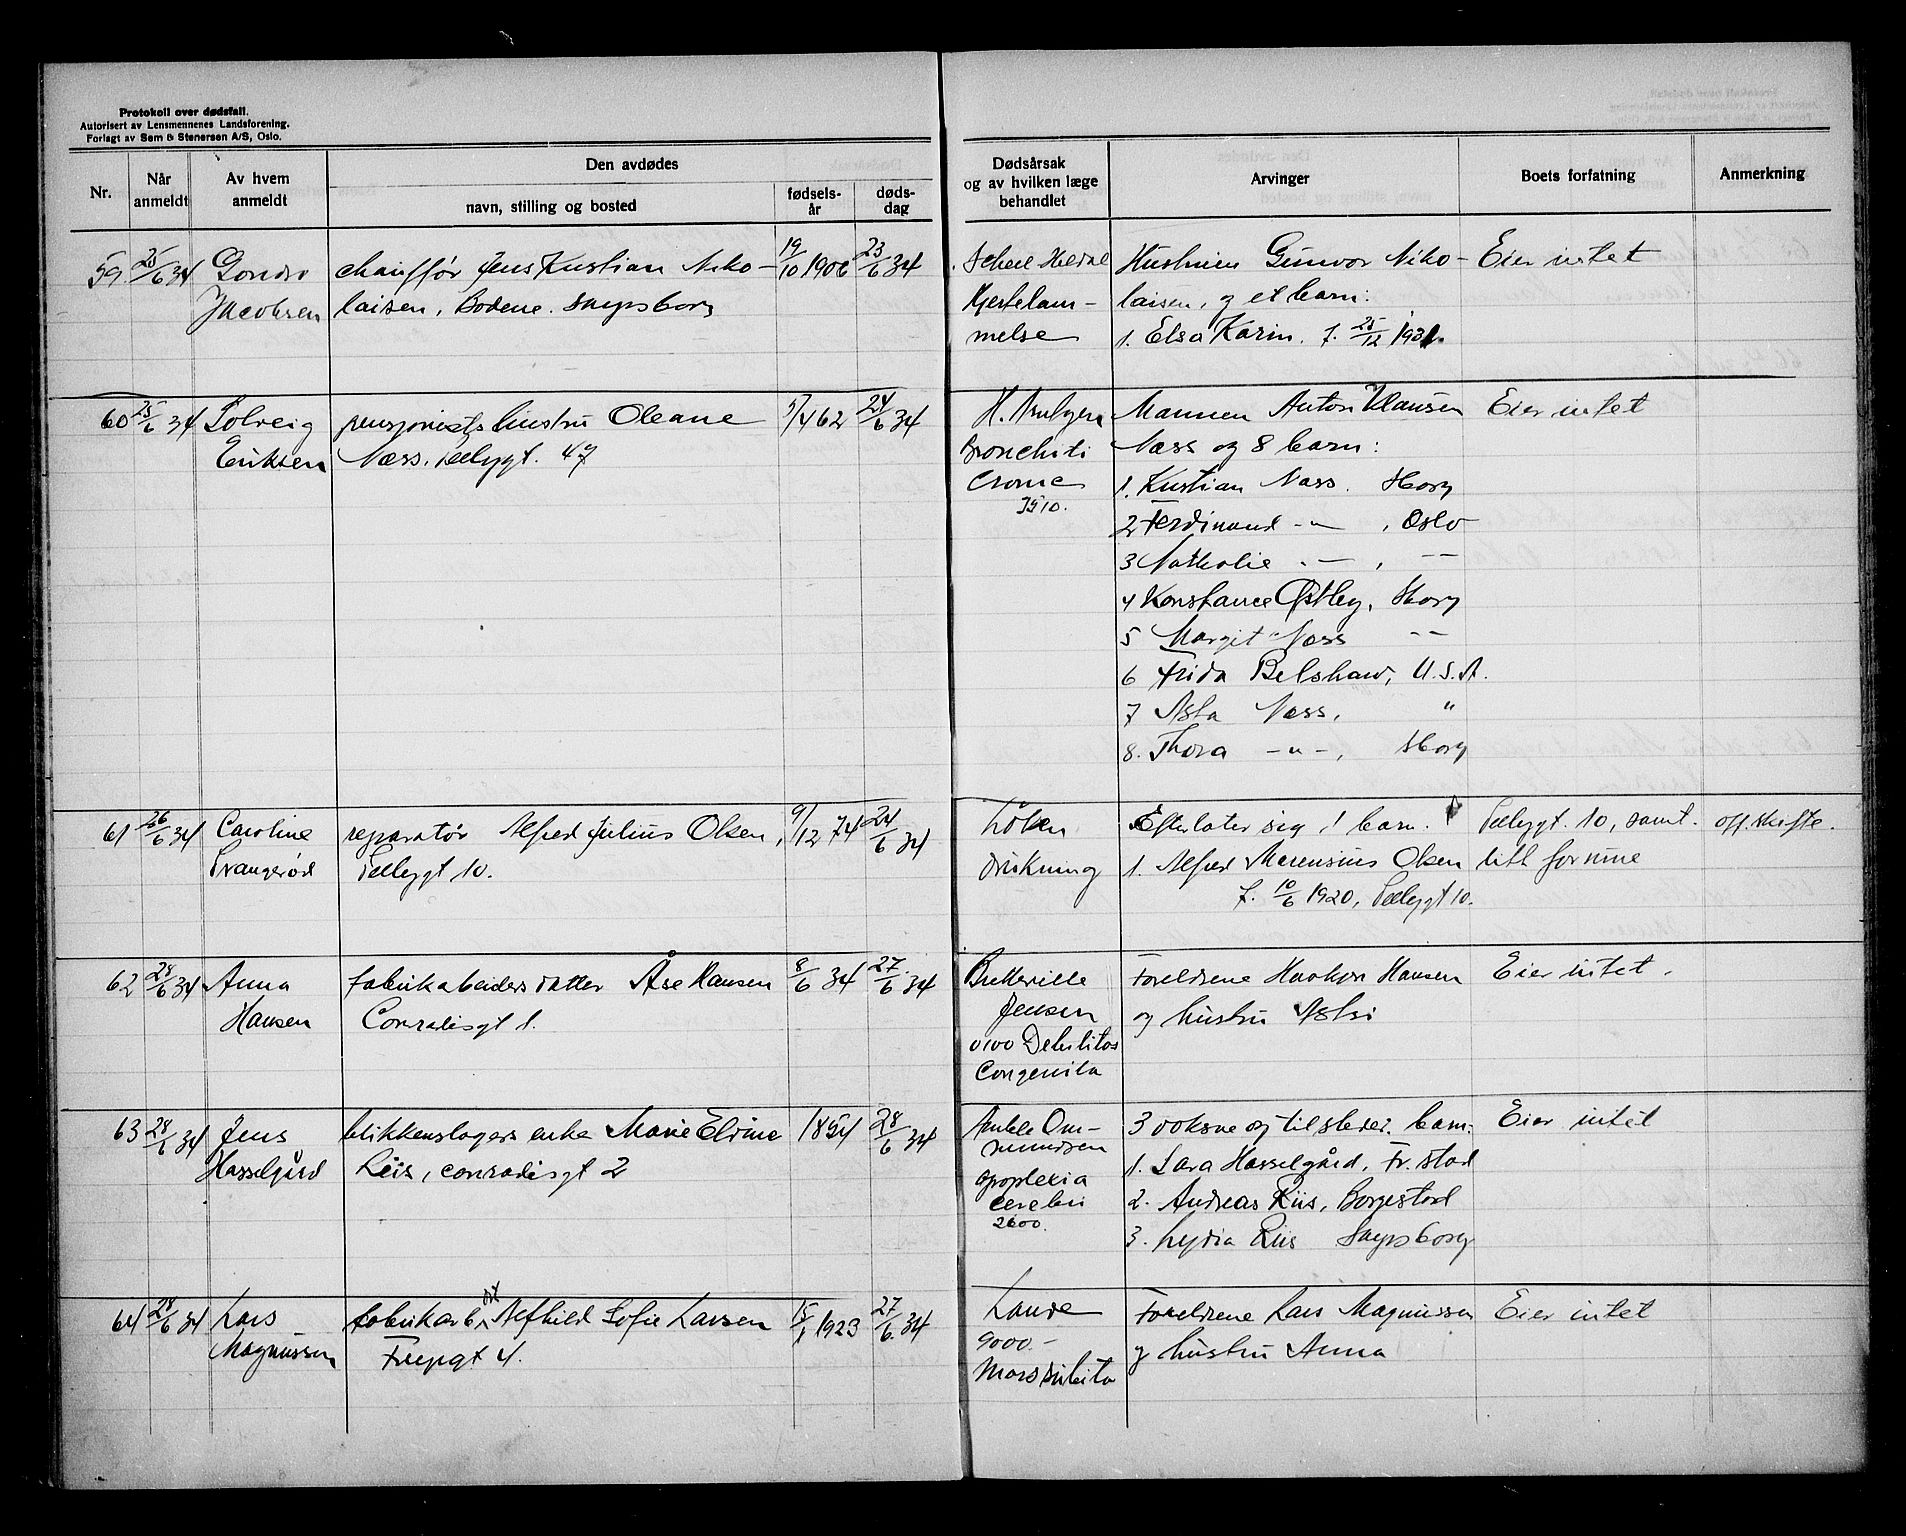 Protokoll over dødsfall.
Autorisert av Lensmennenes Landsforening.
Forlagt av Sem & Stenersen A/S, Oslo.
Nr.
Når anmeldt
Av hvem anmeldt
Den avdødes
navn, stilling og bosted
fødsels-år
døds-dag
Dødsårsak og av hvilken læge behandlet
Arvinger
Boets forfatning
Anmerkning
59. 25/6 34
Jacobsen
chauffør Jens Kristian Niko-
laisen, Bodene. Sarpsborg
19/10 1906
23/6 34
Hjertelam-
melse
Hustruen Gunvor Niko-
laisen, og et barn:
1. Elsa Karin. f. 25/12 1931.
Eier intet
60 25/6 34
Solveig
Eriksen
pensjonists hustru Oleane
Næss. 47
5/4 62
24/6 34
Bronchiti
Cronic
Mannen Anton Klausen
Næss og 8 barn:
1. Kristian Næss. Sborg
2 Ferdinand -"- , Oslo
3 Nathalie -"- , -"-
4 Konstance Østby, Sborg
5 Margit Næss -"-
6 Frida Belshaw, U.S.A.
7 Asta Næss, "
8. Thora -"-, Sborg
Eier intet
61 26/6 34
Caroline
reparatør Alfred Julius Olsen,
Pellygt 10.
9/12 74
24/6 34
Löken
drukning
Efterlater sig 1 barn.
1. Alfred Marensius Olsen
f. 10/6 1920, Pellygt 10.
Pellygt. 10, samt.
litt formue
off. skifte.
62 28/6 34
Anna
Hansen
fabrikarbeiders datter Åse Hansen
Conradisgt 1.
8/6 34
27/6 34
Jensen
Debilitas
Congenita
Foreldrene Haakon Hansen
og hustru Astri
Eier intet.
63 28/6 34
Jens
Hasselgård
blikkenslagers enke Marie Elvine
Riis, conradisgt 2
1854
28/6 34
Anble Om-
mundsen
apoplexia
cerebri
2600.
3 voksne og tilstedev. barn:
1. Sara Hasselgård, Fr.stad
2. Andreas Riis, Borgestad
3. Lydia Riis Sarpsborg
Eier intet
64 28/6 34
Lars
Magnussen
fabrikarb. dtr. Alfhild Sofie Larsen
4.
15/1 1923
27/6 34
Lande
9000.-
Mors subita
Foreldrene Lars Magnussen
og hustru Anna
Eier intet